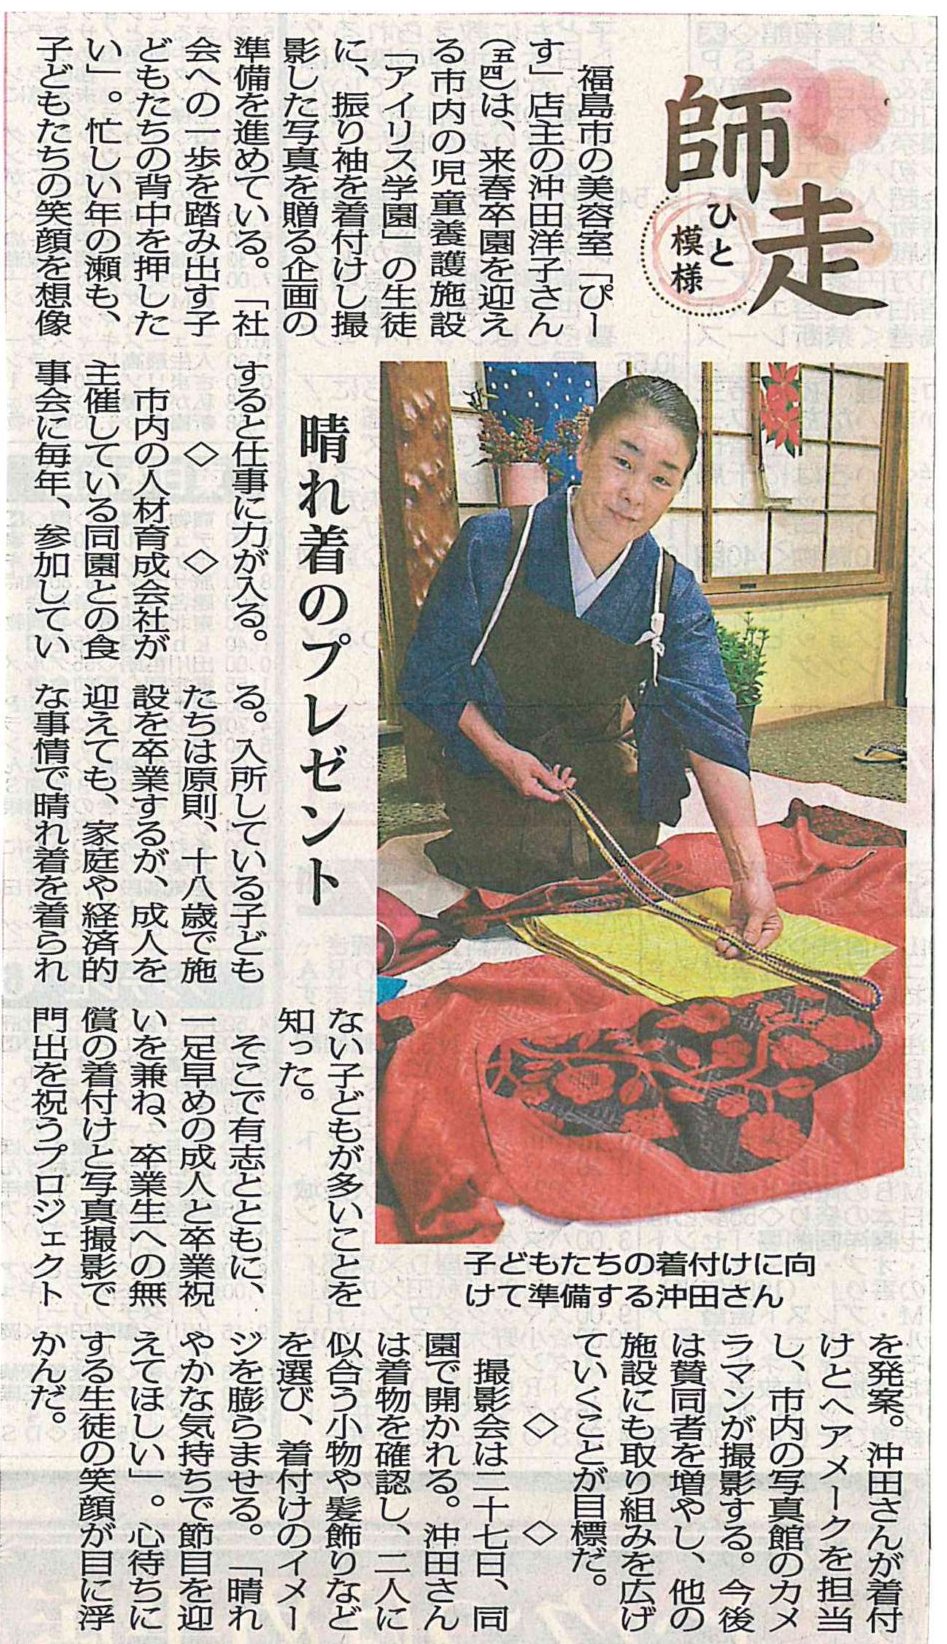 師走
ひと
模様
晴れ着のプレゼント
福島市の美容室「ぴー
す」店主の沖田洋子さん
(五四)は、来春卒園を迎え
る市内の児童養護施設
「アイリス学園」の生徒
に、振り袖を着付けし撮
影した写真を贈る企画の
準備を進めている。「社
会への一歩を踏み出す子
どもたちの背中を押した
い」。忙しい年の瀬も、
子どもたちの笑顔を想像
すると仕事に力が入る。
◇　◇
市内の人材育成会社が
主催している同園との食
事会に毎年、参加してい
る。入所している子ども
たちは原則、十八歳で施
設を卒業するが、成人を
迎えても、家庭や経済的
な事情で晴れ着を着られ
ない子どもが多いことを
知った。
そこで有志とともに、
一足早めの成人と卒業祝
いを兼ね、卒業生への無
償の着付けと写真撮影で
門出を祝うプロジェクト
を発案。沖田さんが着付
けとヘアメークを担当
し、市内の写真館のカメ
ラマンが撮影する。今後
は賛同者を増やし、他の
施設にも取り組みを広げ
ていくことが目標だ。
◇　◇
撮影会は二十七日、同
園で開かれる。沖田さん
は着物を確認し、二人に
似合う小物や髪飾りなど
を選び、着付けのイメー
ジを膨らませる。「晴れ
やかな気持ちで節目を迎
えてほしい」。心待ちに
する生徒の笑顔が目に浮
かんだ。
子どもたちの着付けに向
けて準備する沖田さん